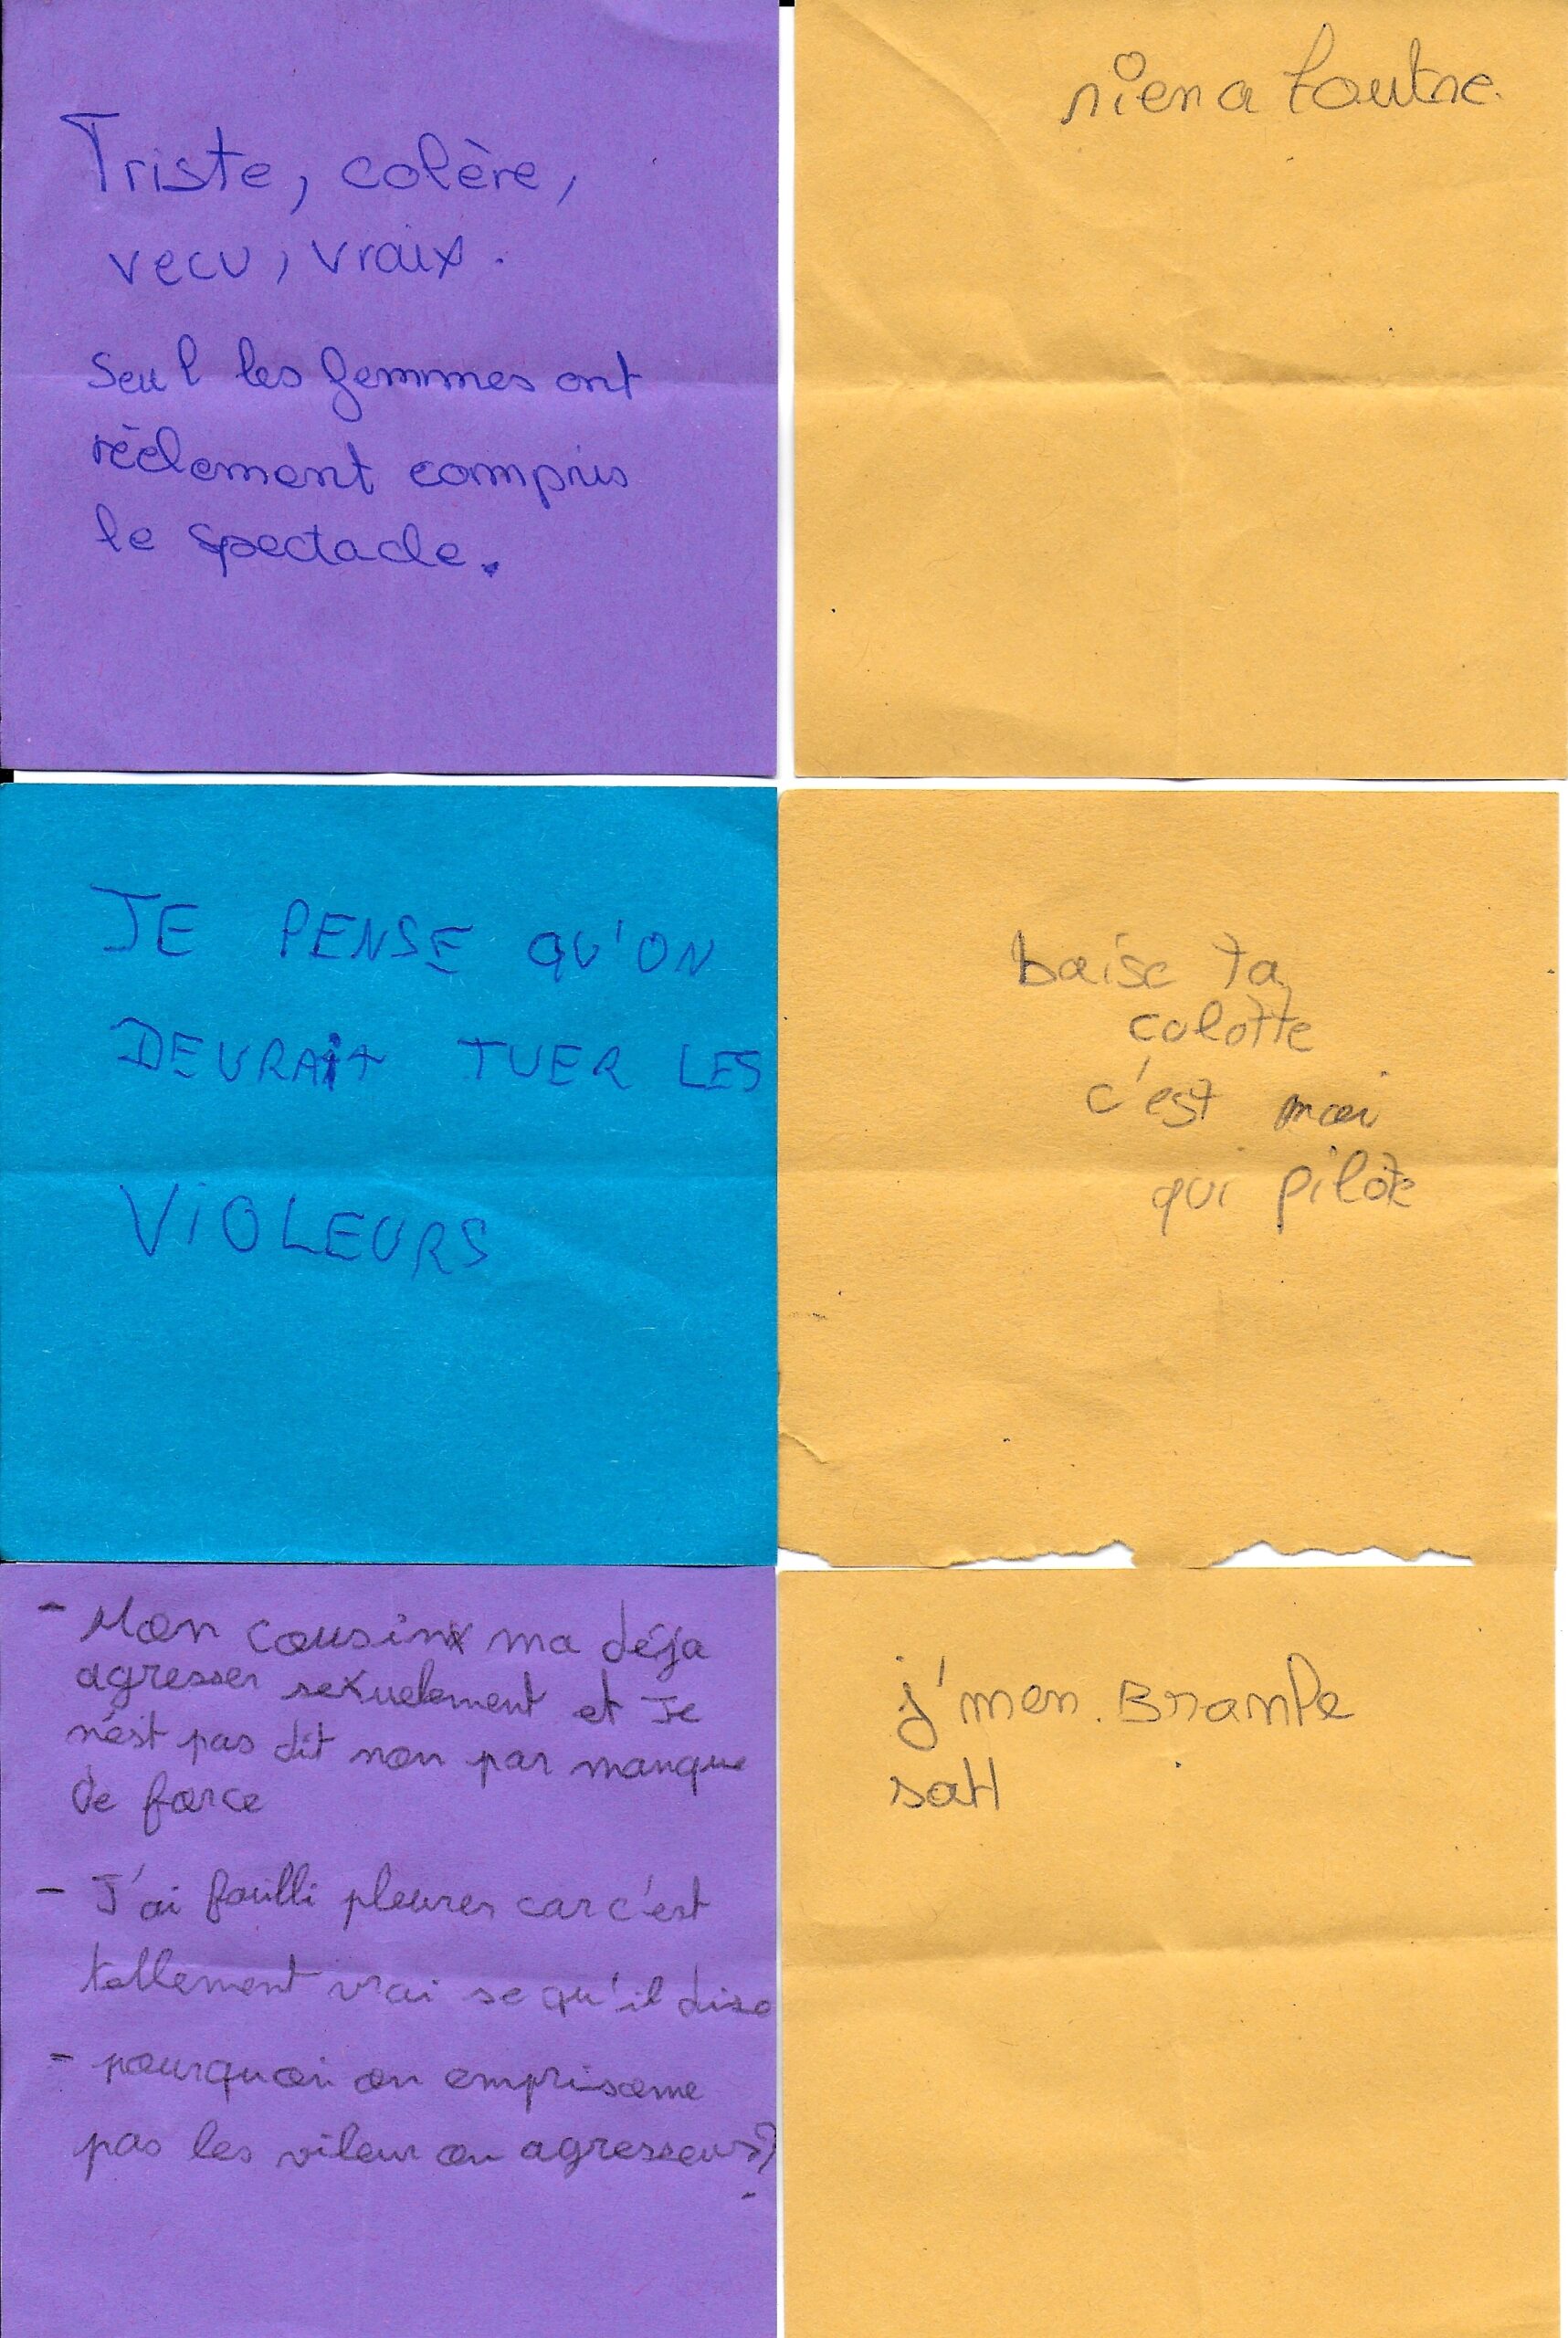 Triste, colère,
vecu, vraix.
Seul les femmes ont
réelement compris
le spectacle.
rien a foutre.
JE PENSE QU'ON
DEVRAit TUER LES
ViOLEURS
baise ta
culotte
c'est moi
qui pilote
- Mon cousin ma déja
agresser sexuelement et Je
n'est pas dit non par manque
de force
- J'ai failli pleurer car c'est
tellement vrai se qu'il dise
- pourquoi on emprisonne
pas les violeur ou agresseurs?
j'men. Branle
sah